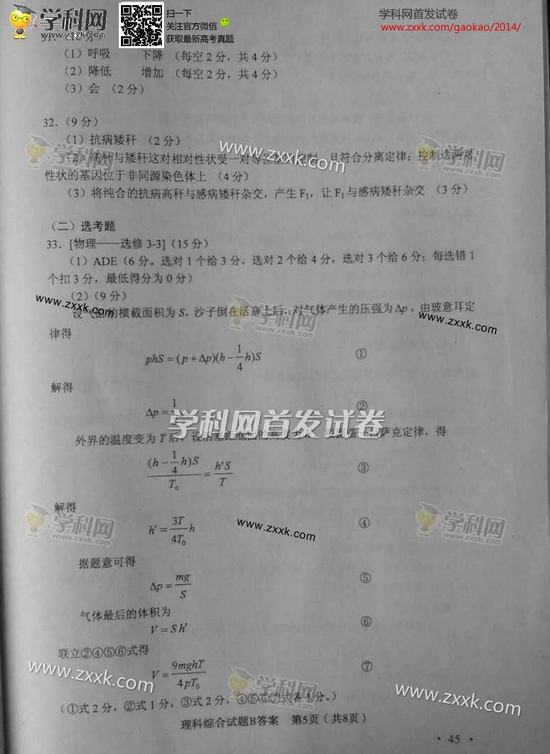 学科网
www.zxxk.com
扫一下
关注官方微信
获取最新高考真题
学科网首发试卷
www.zxxk.com/gaokao/2014/
(1)呼吸 下降 (每空2分,共4分)
(2)降低 增加 (每空2分,共4分)
(3)会 (2分)
32.(9分)
(1)抗病矮秆 (2分)
(2)高秆与矮秆这对相对性状受一对等位基因控制,且符合分离定律;控制这两对
性状的基因位于非同源染色体上 (4分)
(3)将纯合的抗病高秆与感病矮秆杂交,产生F₁,让F₁与感病矮秆杂交 (3分)
(二)选考题
33.[物理——选修3-3](15分)
(1)ADE(6分。选对1个给3分,选对2个给4分,选对3个给6分;每选错1
个扣3分,最低得分为0分)
(2)(9分)
设气缸的横截面积为S,沙子倒在活塞上后,对气体产生的压强为Δp,由玻意耳定
律得
phS=(p+Δp)(h-1/4h)S ①
解得
Δp=1 ②
学科网首发试卷
外界的温度变为T后,
萨克定律,得
(h-1/4h)S/T₀=h'S/T ③
解得
h'=3T/4T₀h ④
据题意可得
Δp=mg/S ⑤
气体最后的体积为
V=Sh' ⑥
联立②④⑤⑥式得
V=9mghT/4pT₀ ⑦
(①式2分,②式1分,③式2分,④⑤⑥⑦式各1分。)
理科综合试题B答案 第5页(共8页)
·45·